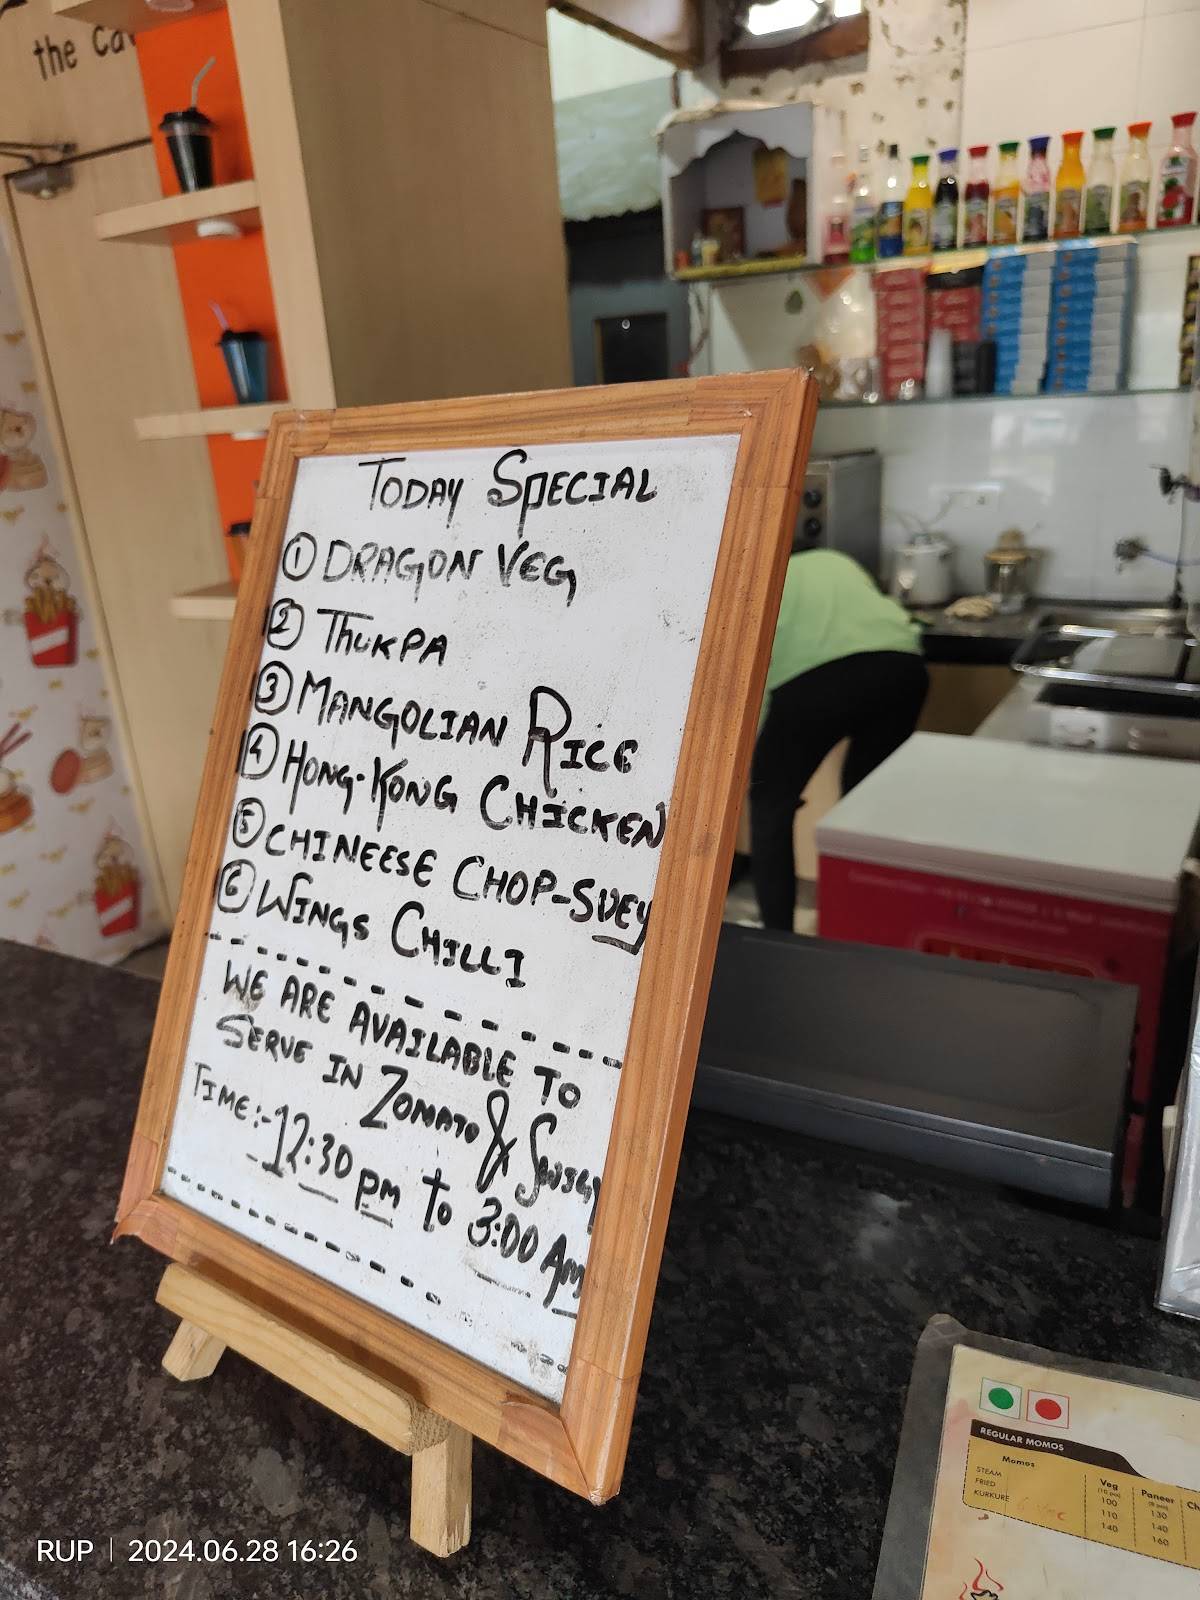 the Ca
TODAY SPECIAL
① DRAGON VEG
② THUKPA
③ MANGOLIAN RICE
④ HONG-KONG CHICKEN
⑤ CHINEESE CHOP-SUEY
⑥ WINGS CHILLI
WE ARE AVAILABLE TO
SERVE IN ZOMATO & SWIGY
TIME:- 12:30 PM to 3:00 AM
REGULAR MOMOS
Momos
Veg
Paneer
Ch
(10 pcs)
(8 pcs)
STEAM 100 130
FRIED 110 140
KURKURE 140 160
RUP | 2024.06.28 16:26